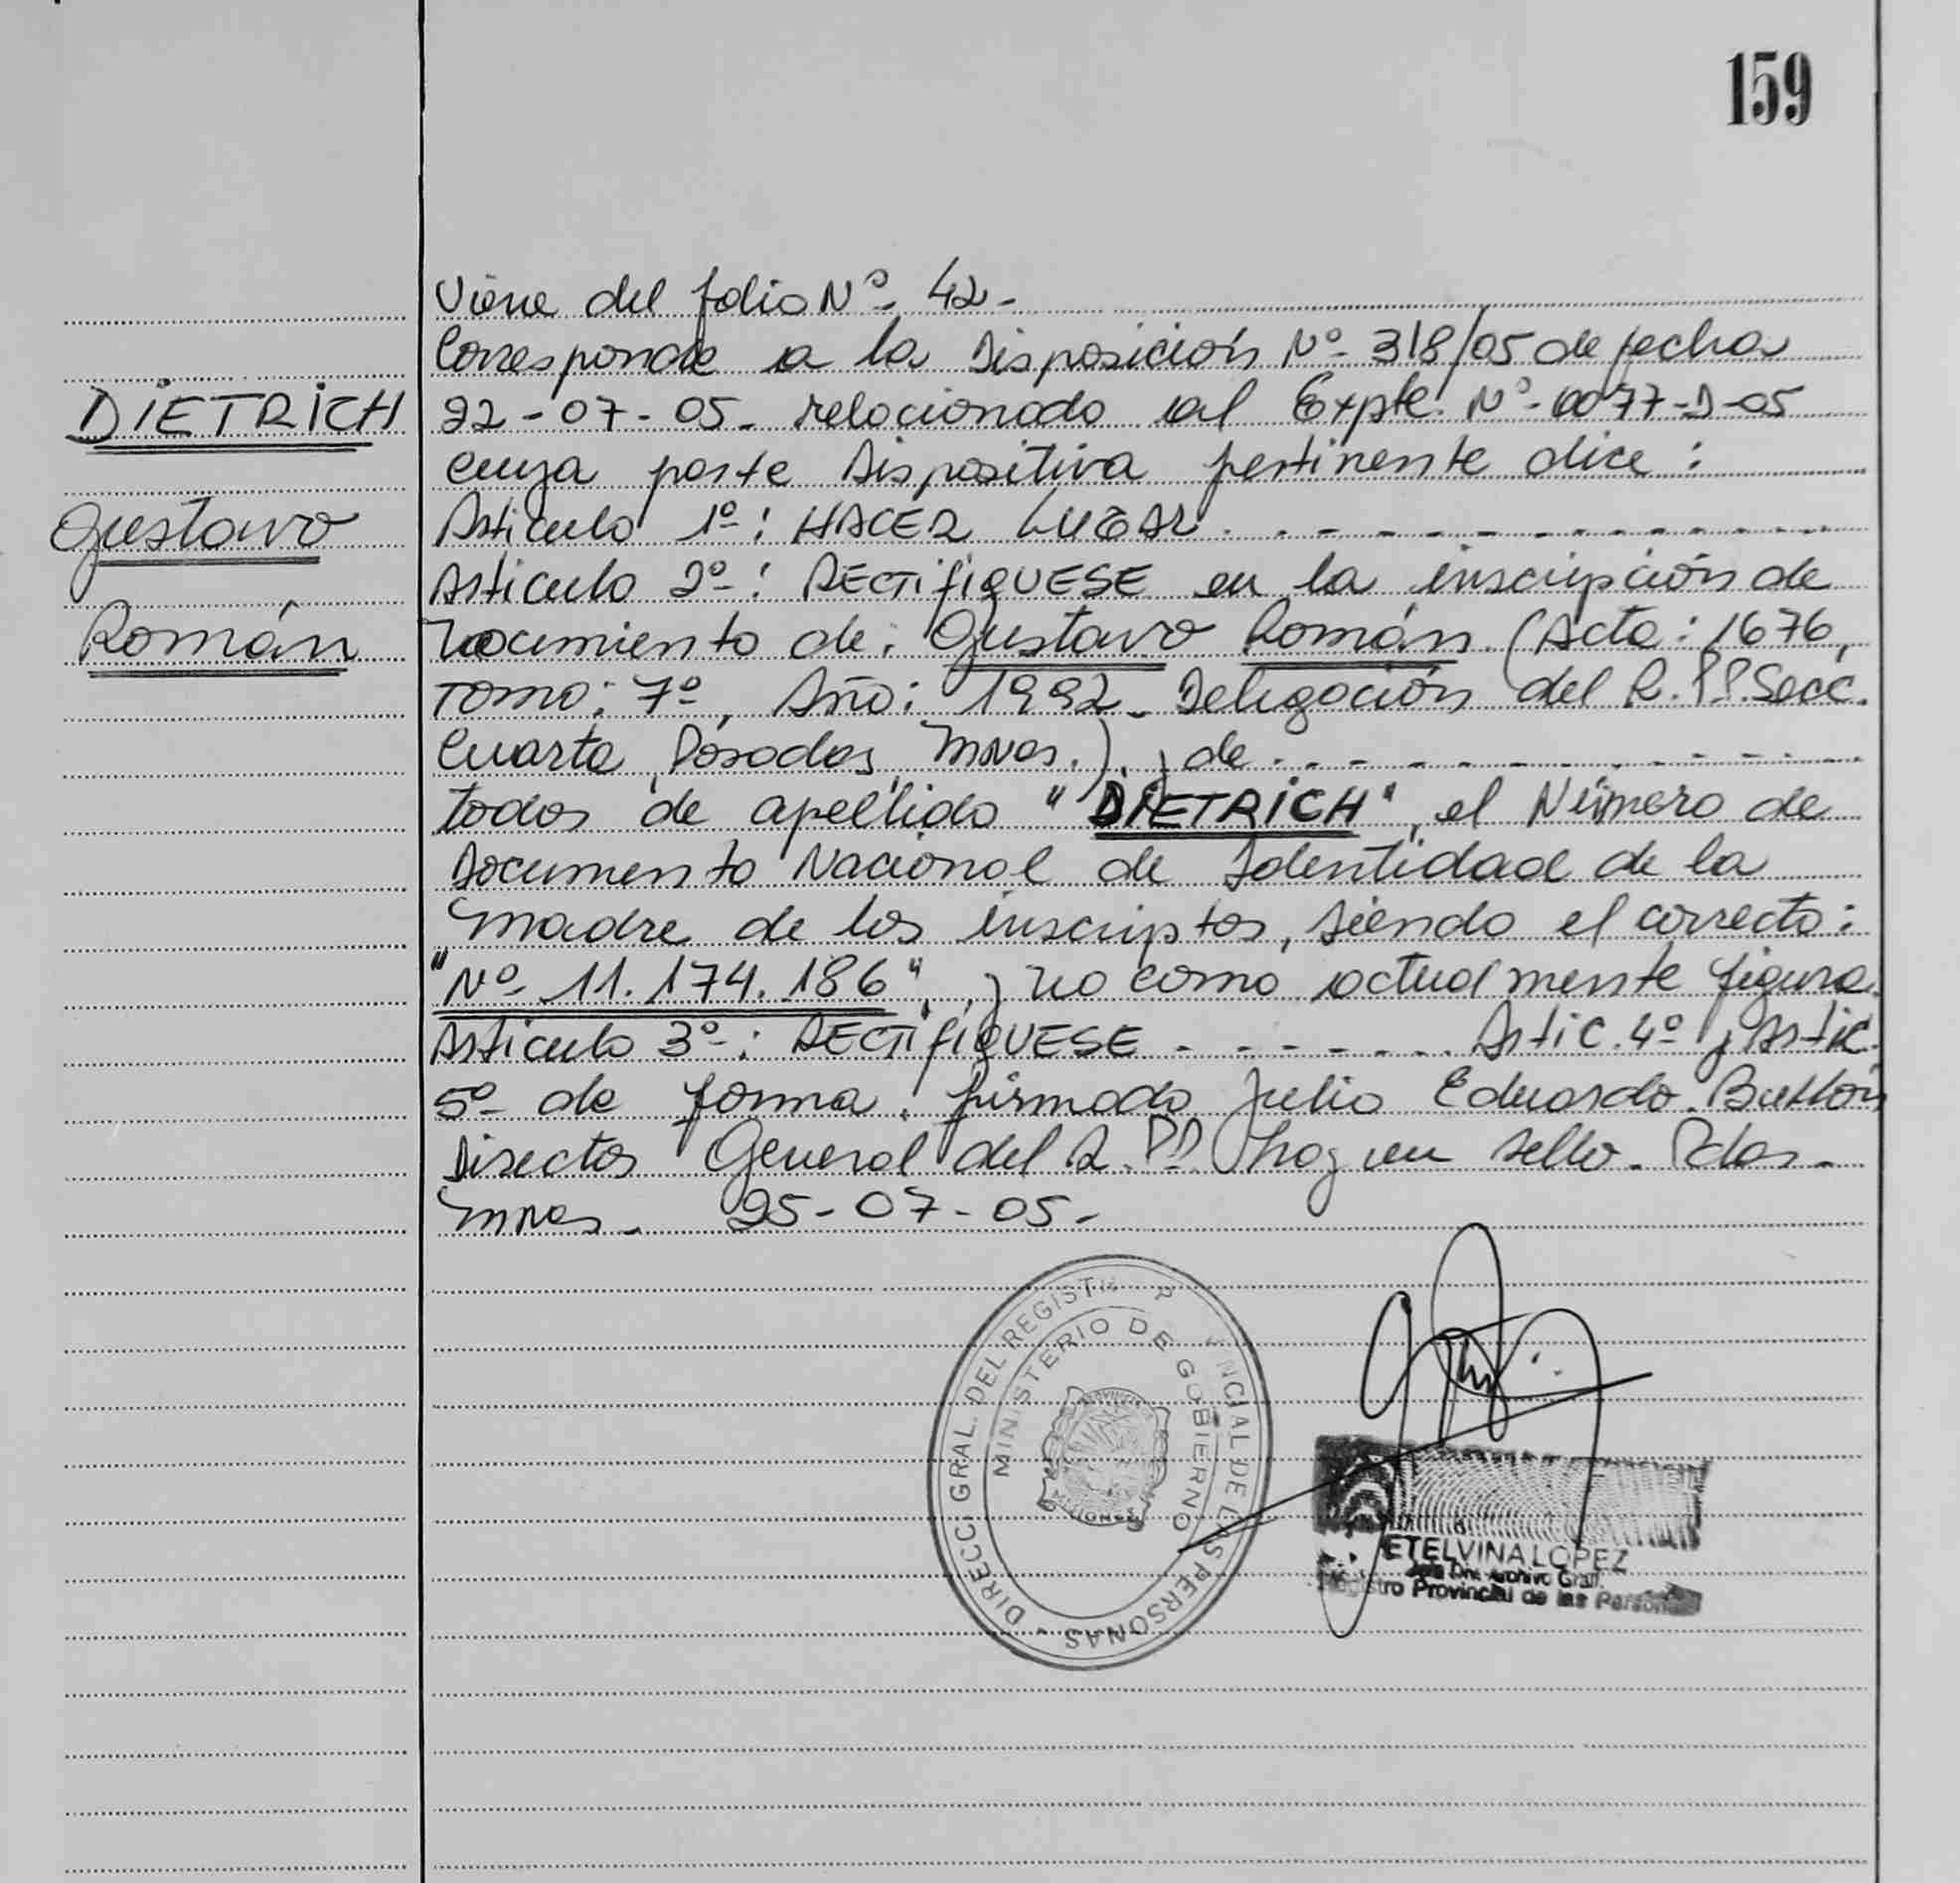 159
Viene del folio Nº 42-
Corresponde a la Disposición Nº 318/05 de fecha
DIETRICH
22-07-05- relacionado al Expte. Nº 0077-D-05
cuya parte Dispositiva pertinente dice:
Gustavo
Articulo 1º: HACER LUGAR - - - - - - - - - -
Articulo 2º: RECTIFIQUESE en la inscripción de
Román
nacimiento de: Gustavo Román (Acta: 1676,
Tomo: 7º, Año: 1992 - Delegación del R.P.P. Secc.
Cuarta, Posadas, Mnes.), y de - - - - - - - - - -
todos de apellido "DIETRICH", el Número de
Documento Nacional de Identidad de la
madre de los inscriptos, siendo el correcto:
"Nº 11.174.186", y no como actualmente figura.
Articulo 3º: RECTIFIQUESE - - - - - - Artic. 4º y Artic.
5º de forma. firmado Julio Eduardo
Director General del R.P.P. hay un sello. Pdas-
Mnes- 25-07-05-
DIRECCI GRAL. DEL REGISTR P V NCIAL DE LAS PERSONAS
MINISTERIO DE GOBIERNO
ETELVINA LOPEZ
Jefa Div. Archivo Gral.
Registro Provincial de las Personas